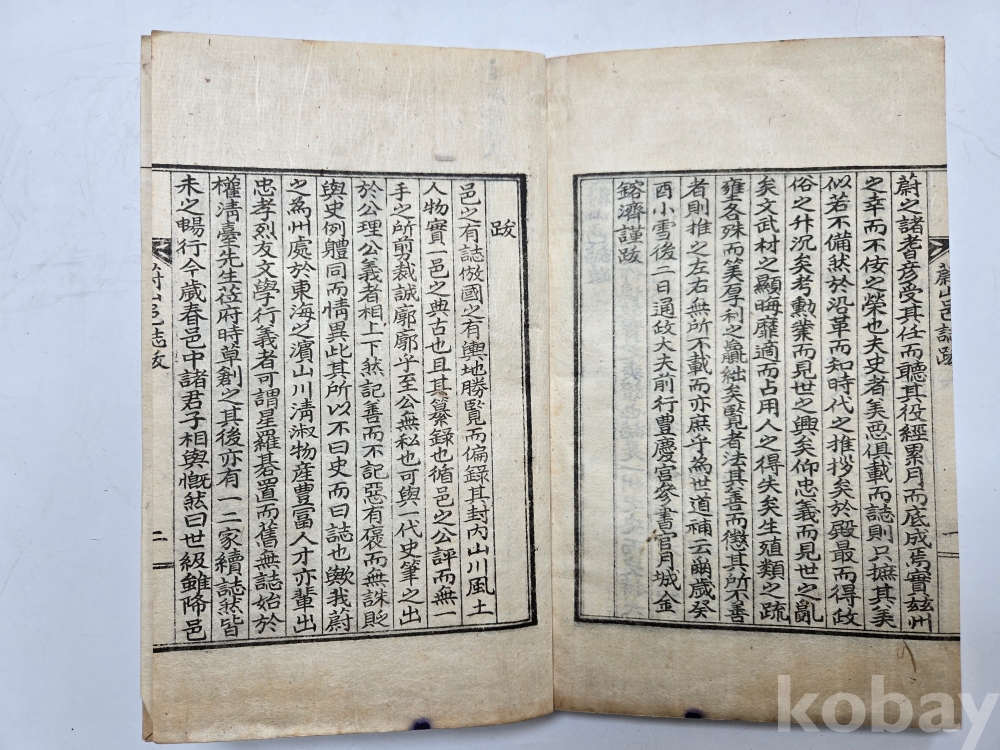 蔚山邑誌跋
蔚之諸耆彦受其任而聽其役經累月而底成焉實玆州
之幸而不佞之榮也夫史者美惡俱載而誌則只摭其美
似若不備然於沿革而知時代之推抄矣於殿最而得政
俗之升沉矣考勳業而見世之興矣仰忠義而見世之亂
矣文武村之顯晦靡適而占用人之得失矣生殖類之疏
壅各殊而筭厚利之贏絀矣賢者法其善而懲其所不善
者則推之左右無所不載而亦庶乎爲世道補云爾歲癸
酉小雪後二日通政大夫前行曹慶宮參書官月城金
鎔濟謹跋
跋
邑之有誌倣國之有輿地勝覽而偏錄其封內山川風土
人物實一邑之典古也且其纂錄也循邑之公評而無一
手之所剪裁誠廓廓乎至公無私也可與一代史筆之出
於公理公義者相上下然記善而不記惡有褒而無誅貶
與史例體同而情異此其所以不曰史而曰誌也歟我蔚
之爲州處於東海之濱山川淸淑物産豊富人才亦輩出
忠孝烈友文學行義者可謂星羅碁置而舊無誌始於
權淸臺先生莅府時草創之其後亦有一二家續誌然皆
未之暢行今歲春邑中諸君子相與慨然曰世級雖降邑
蔚山邑誌跋
二
kobay